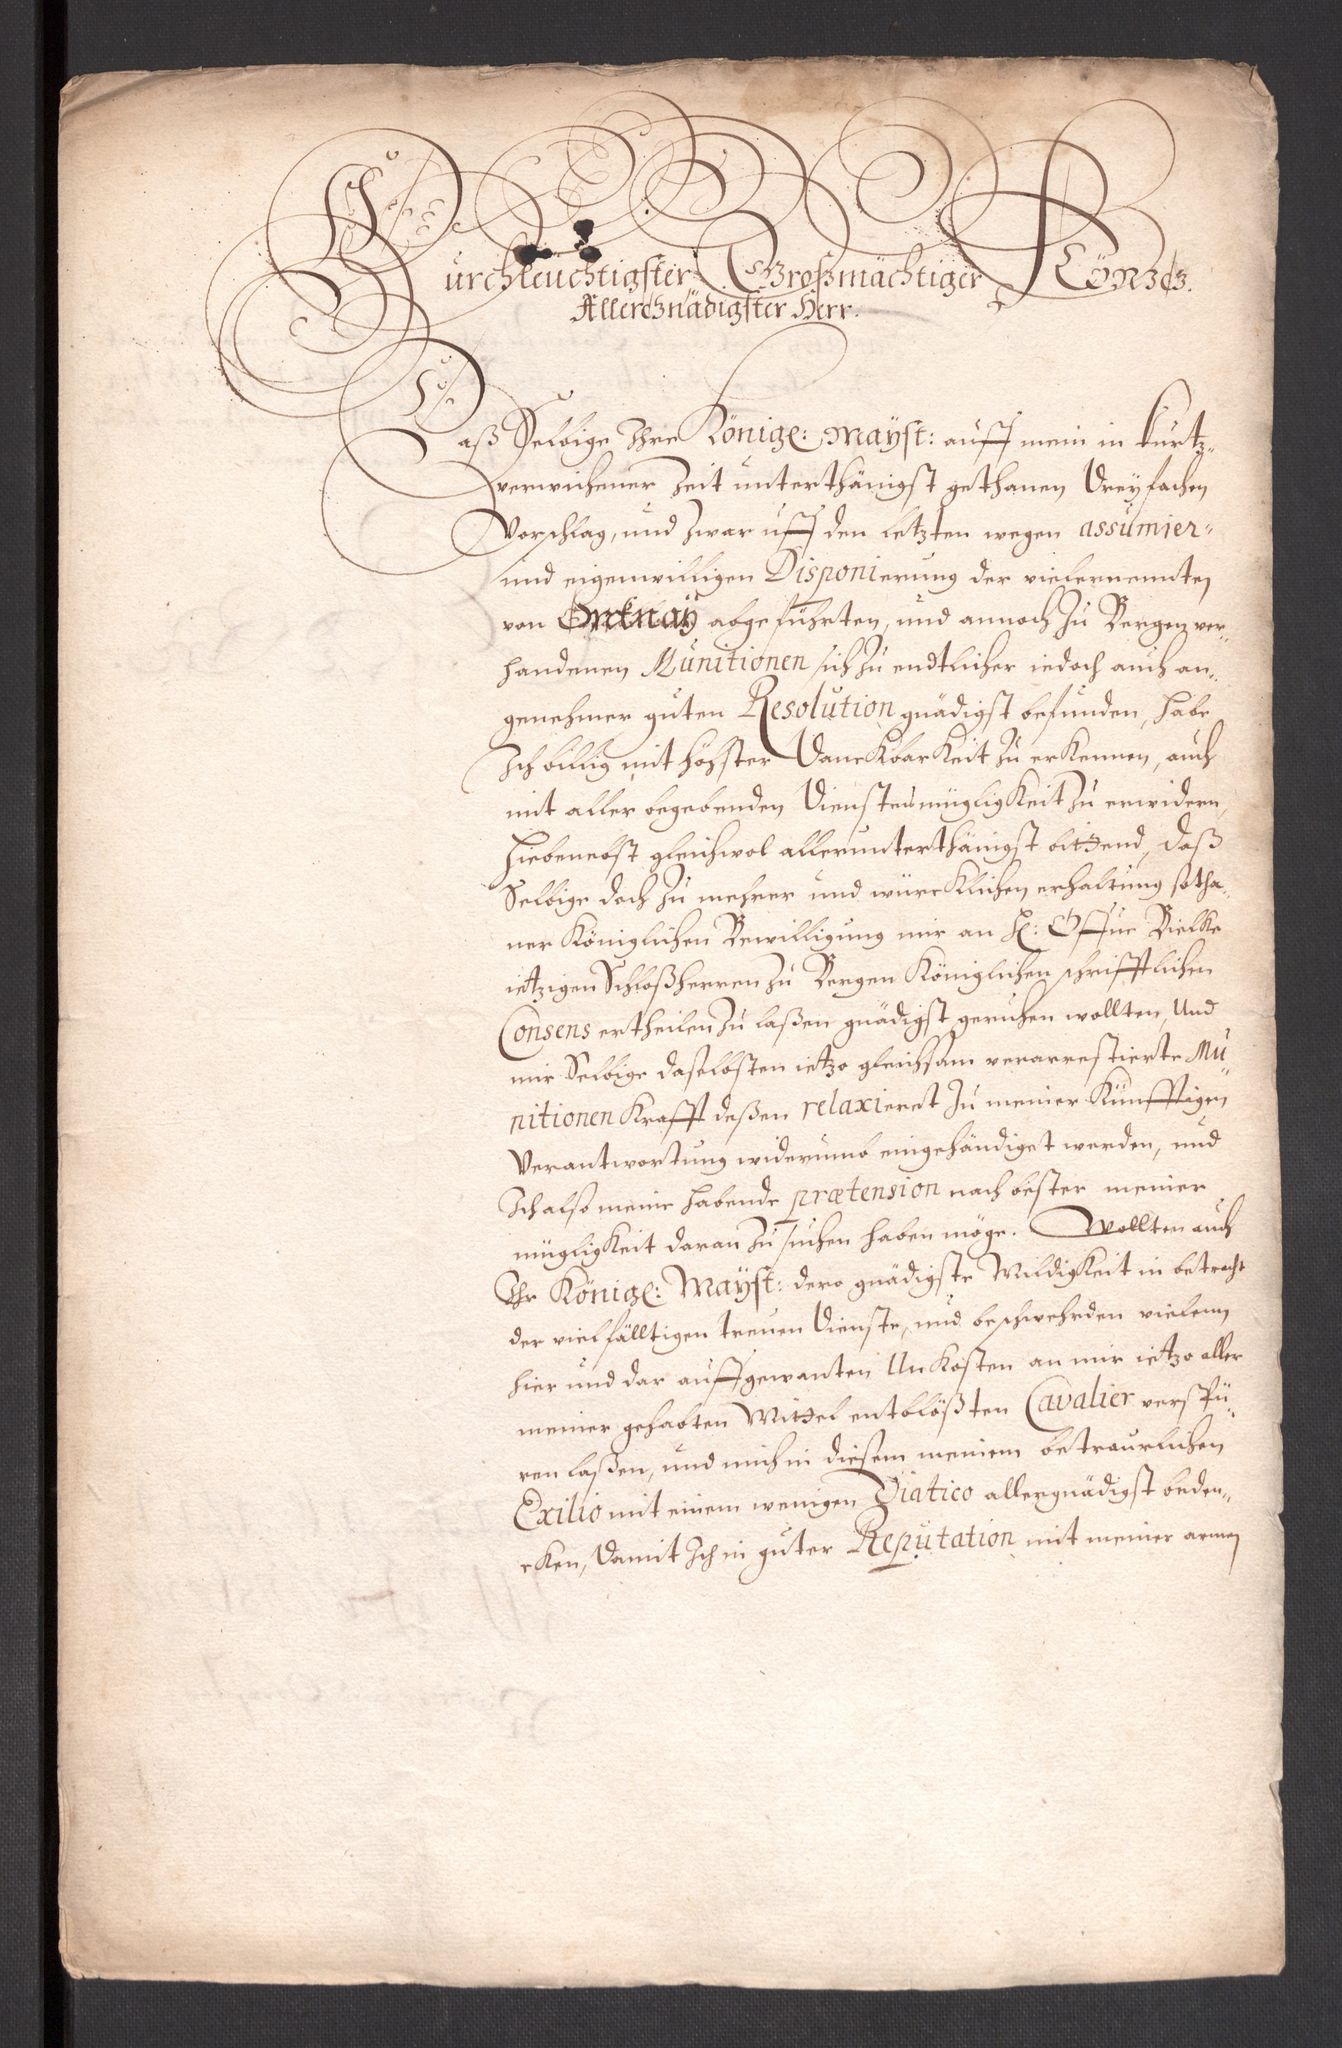 Durchleuchtigster Großmächtiger König.
Allergnädigster Herr.
Daß Selbige Ihre Königl: Mayst: auff mein in kurtz„
verwichener Zeit unterthänigst gethanen Dreyfachen
Vorschlag, und zwar uff den letzten wegen assumier„
und eigenwilligen Disponierung der vielernennten
von Orknay abgeführten, und annoch zu Bergen ver„
handenen Munitionen sich zu endtlicher iedoch auch an„
genehmer guten Resolution gnädigst befunden, habe
Ich billig mit höchster Danckbarkeit zu erkennen, auch
mit aller begebenden Dienstes mügligkeit zu erwidern,
Hiebenebst gleichwol allerunterthänigst bittend, daß
Selbige doch zu mehrer und würcklichen erhaltung sotha„
ner Königlichen Bewilligung mir an H: Offue Bielke
ietzigen Schloßherren zu Bergen Königlichen schrifftlichen
Consens ertheilen zu laßen gnädigst geruhen wollten, Und
mir Selbige daselbsten ietzo gleichsam verarrestierte Mu„
nitionen Krafft deßen relaxieret zu meiner Künfftigen
Verantwortung widerumb eingehändiget werden, und
Ich also meine habende prætension nach bester meiner
mügligkeit daran zu suchen haben möge. Wollten auch
Ihr Königl: Mayst: dero gnädigste Mildigkeit in betracht
der vielfälltigen treuen Dienste, und beschwehrden vielem
hier und dar auffgewanten Unkosten an mir ietzo aller
meiner gehabten Mittel entblößten Cavalier verspü„
ren laßen, und mich in diesem meinem betraurlichen
Exilio mit einem wenigen Viatico allergnädigst beden„
cken, Damit Ich in guter Reputation mit meiner armen